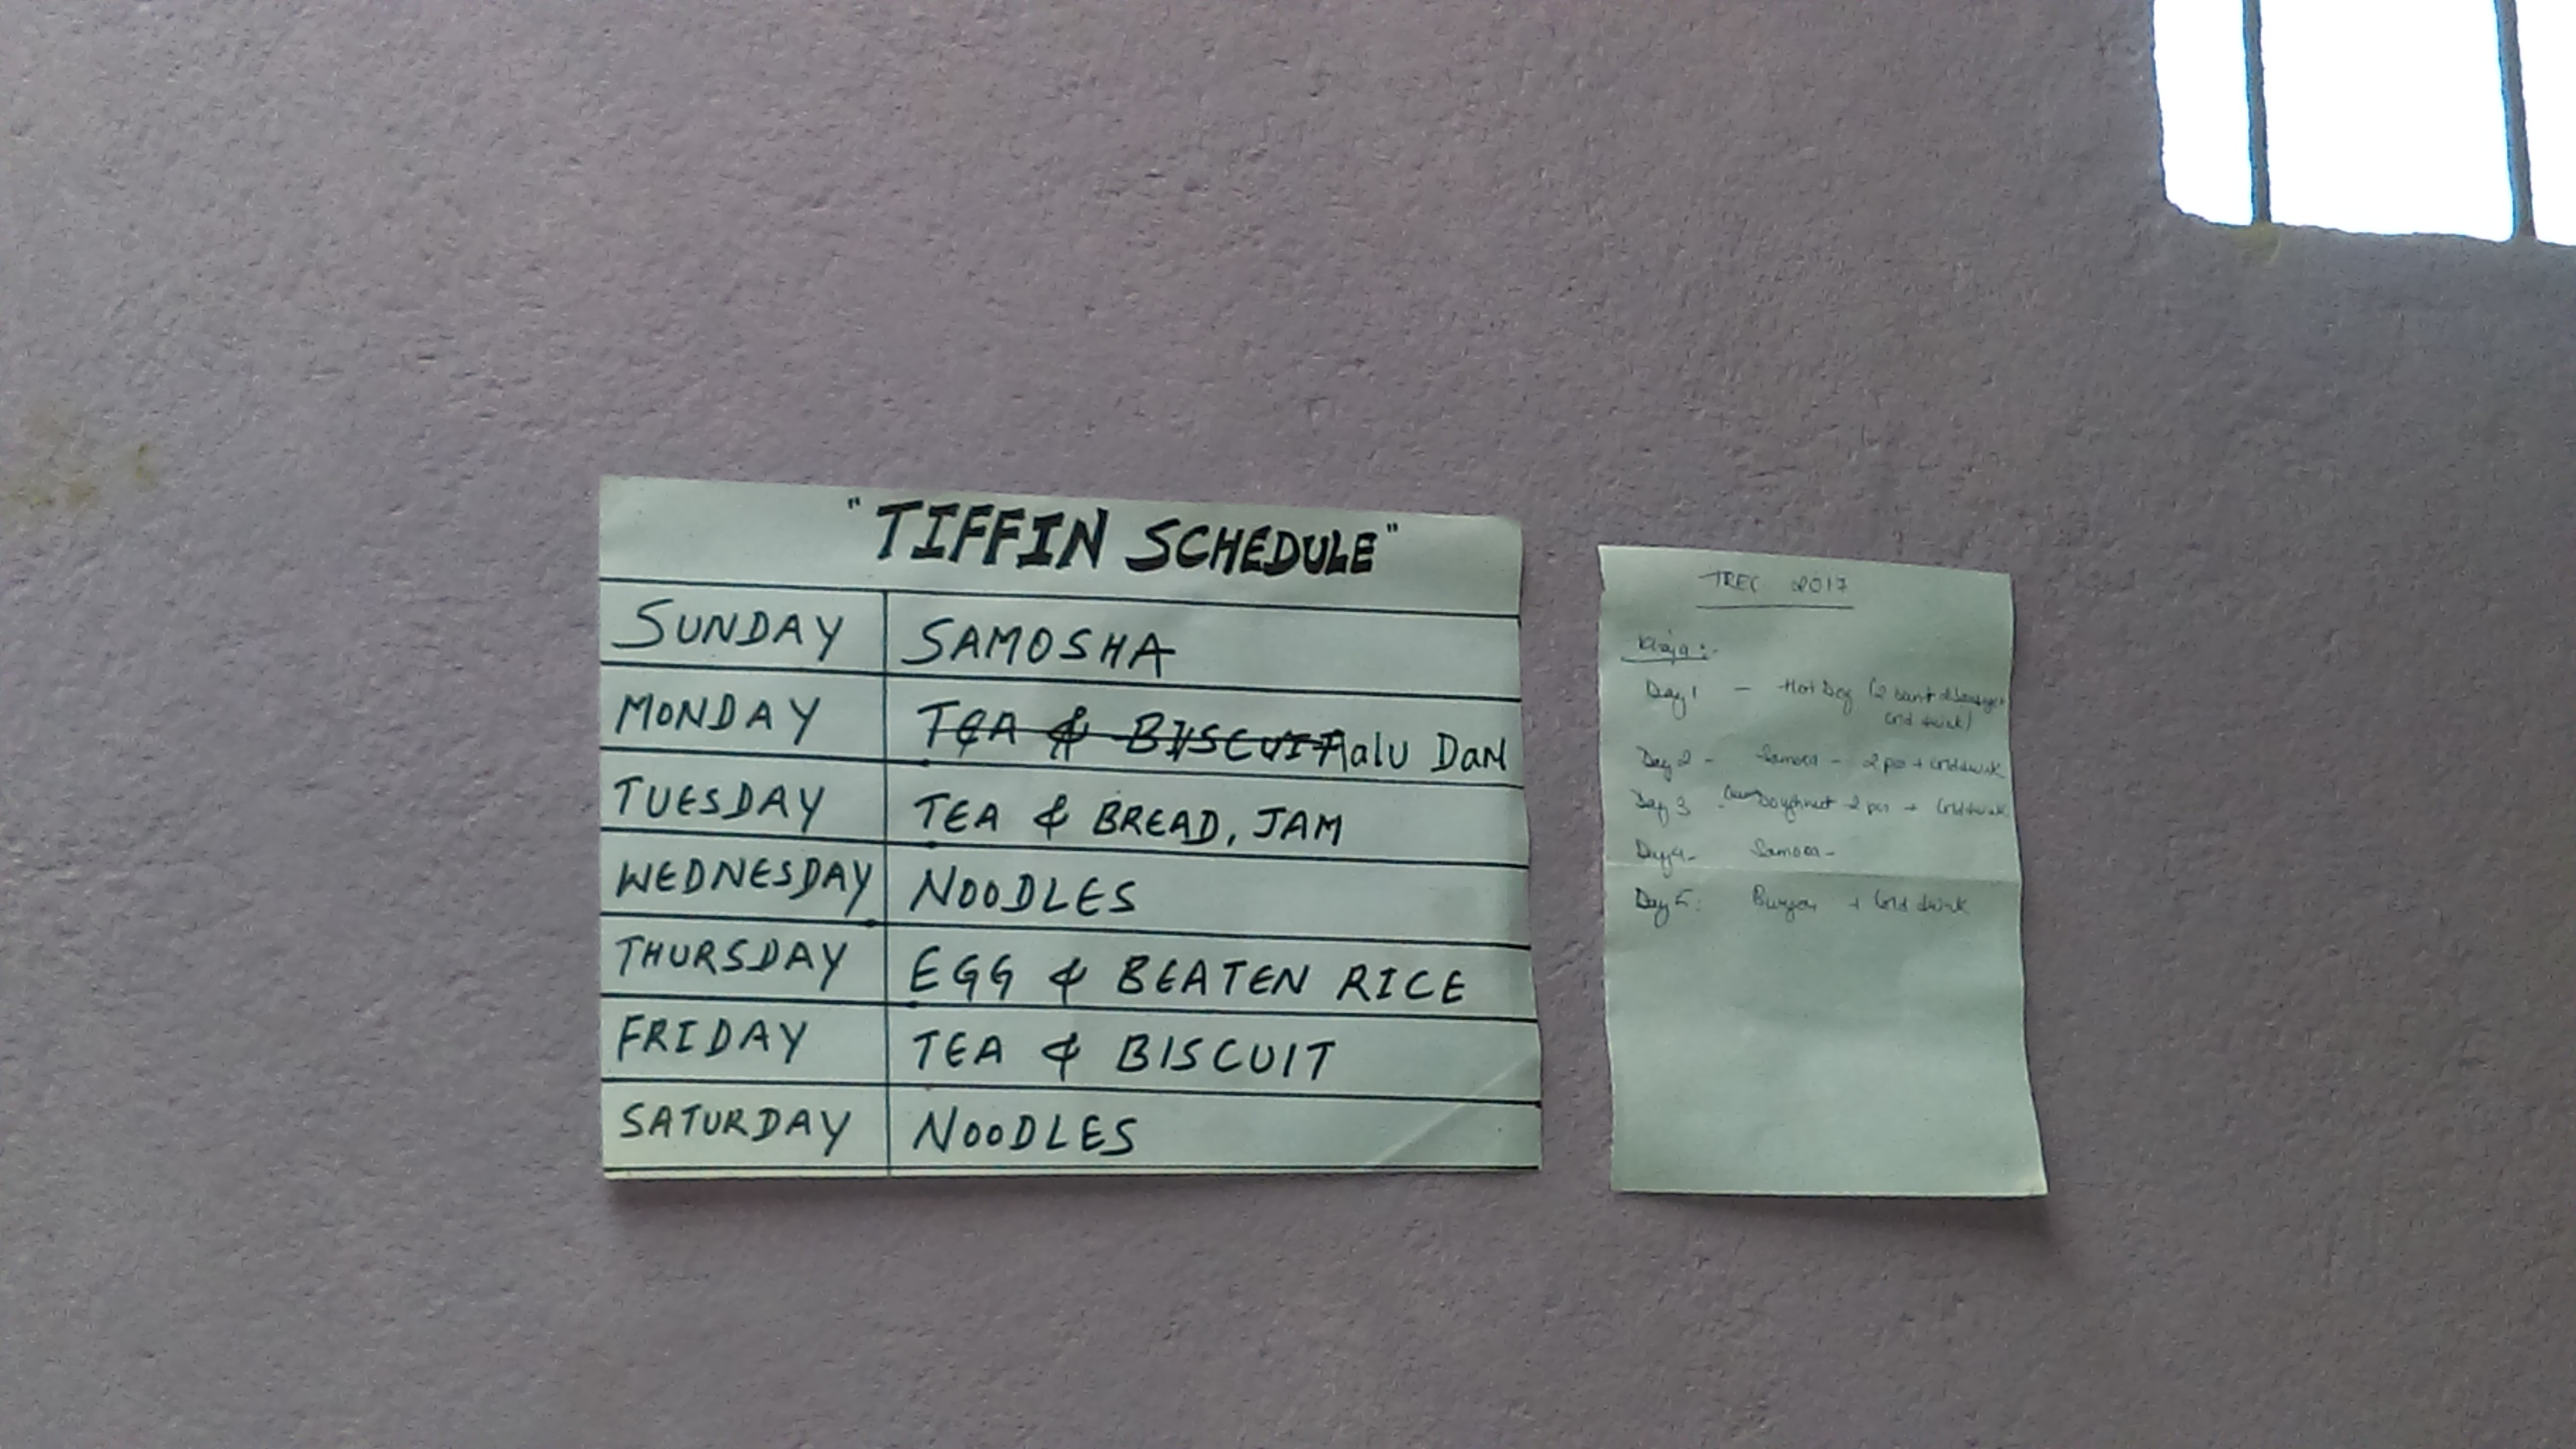 "TIFFIN SCHEDULE"
SUNDAY SAMOSHA
MONDAY TEA & BISCUIT Aalu DaM
TUESDAY TEA & BREAD, JAM
WEDNESDAY NOODLES
THURSDAY EGG & BEATEN RICE
FRIDAY TEA & BISCUIT
SATURDAY NOODLES
TREC 2017
Khaja :-
Day 1 - Hot Dog (2
cold drink)
Day 2 - Samosa - 2 pcs + cold drink
Day 3 Doughnut 2 pcs + Cold drink
Day 4 - Samosa -
Day 5 : Burger + Cold drink